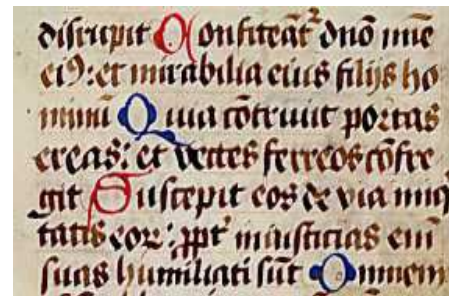 disrupit Confiteãt᷑ dño mīe
eiꝰ: et mirabilia eius filijs ho
minū Quia cōtriuit portas
ereas: et vectes ferreos cōfre
git Suscepit eos de via iniq̄
tatis eoꝝ: ꝓpt᷑ iniusticias eni᷑
suas humiliati sūt Omnem